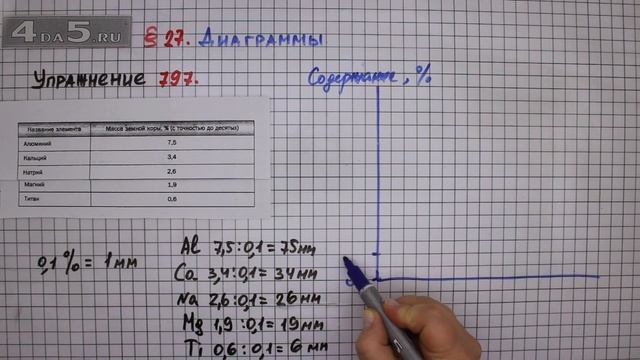 4DA5.RU
§ 27. Диаграммы
Упражнение 797.
Содержание, %
Название элемента Масса земной коры, % (с точностью до десятых)
Алюминий 7,5
Кальций 3,4
Натрий 2,6
Магний 1,9
Титан 0,6
0,1% = 1мм
Al 7,5:0,1=75мм
Ca 3,4:0,1=34мм
Na 2,6:0,1=26мм
Mg 1,9:0,1=19мм
Ti 0,6:0,1=6мм